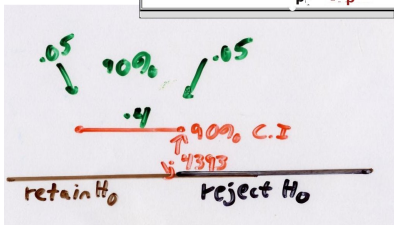 .05 90% .05
.4
90% C.I
.4393
retain H₀ reject H₀